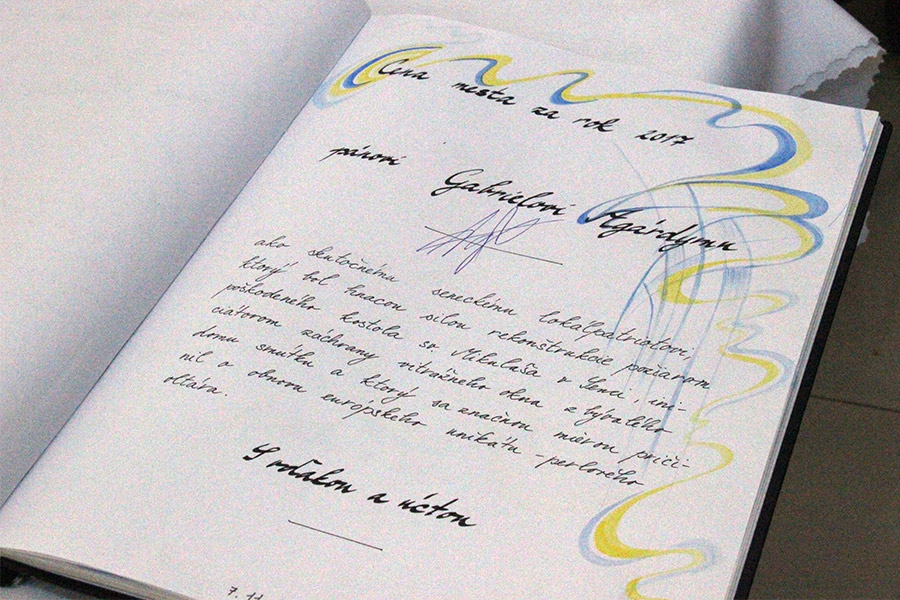 Cena mesta za rok 2017
pánovi
Gabrielovi Agárdymu
ako skutočnému seneckému lokálpatriotovi,
ktorý bol hnacou silou rekonštrukcie požiarom
poškodeného kostola sv. Mikuláša v Senci, ini-
ciátorom záchrany vitrážneho okna z bývalého
domu smútku a ktorý sa značnou mierou priči-
nil o obnovu európskeho unikátu - perlového
oltára.
S vďakou a úctou
7. 11